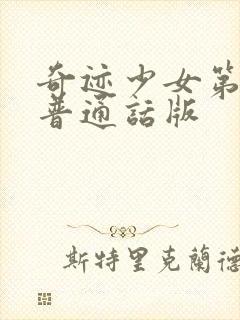 奇迹少女第
普通話版
斯特里克蘭德